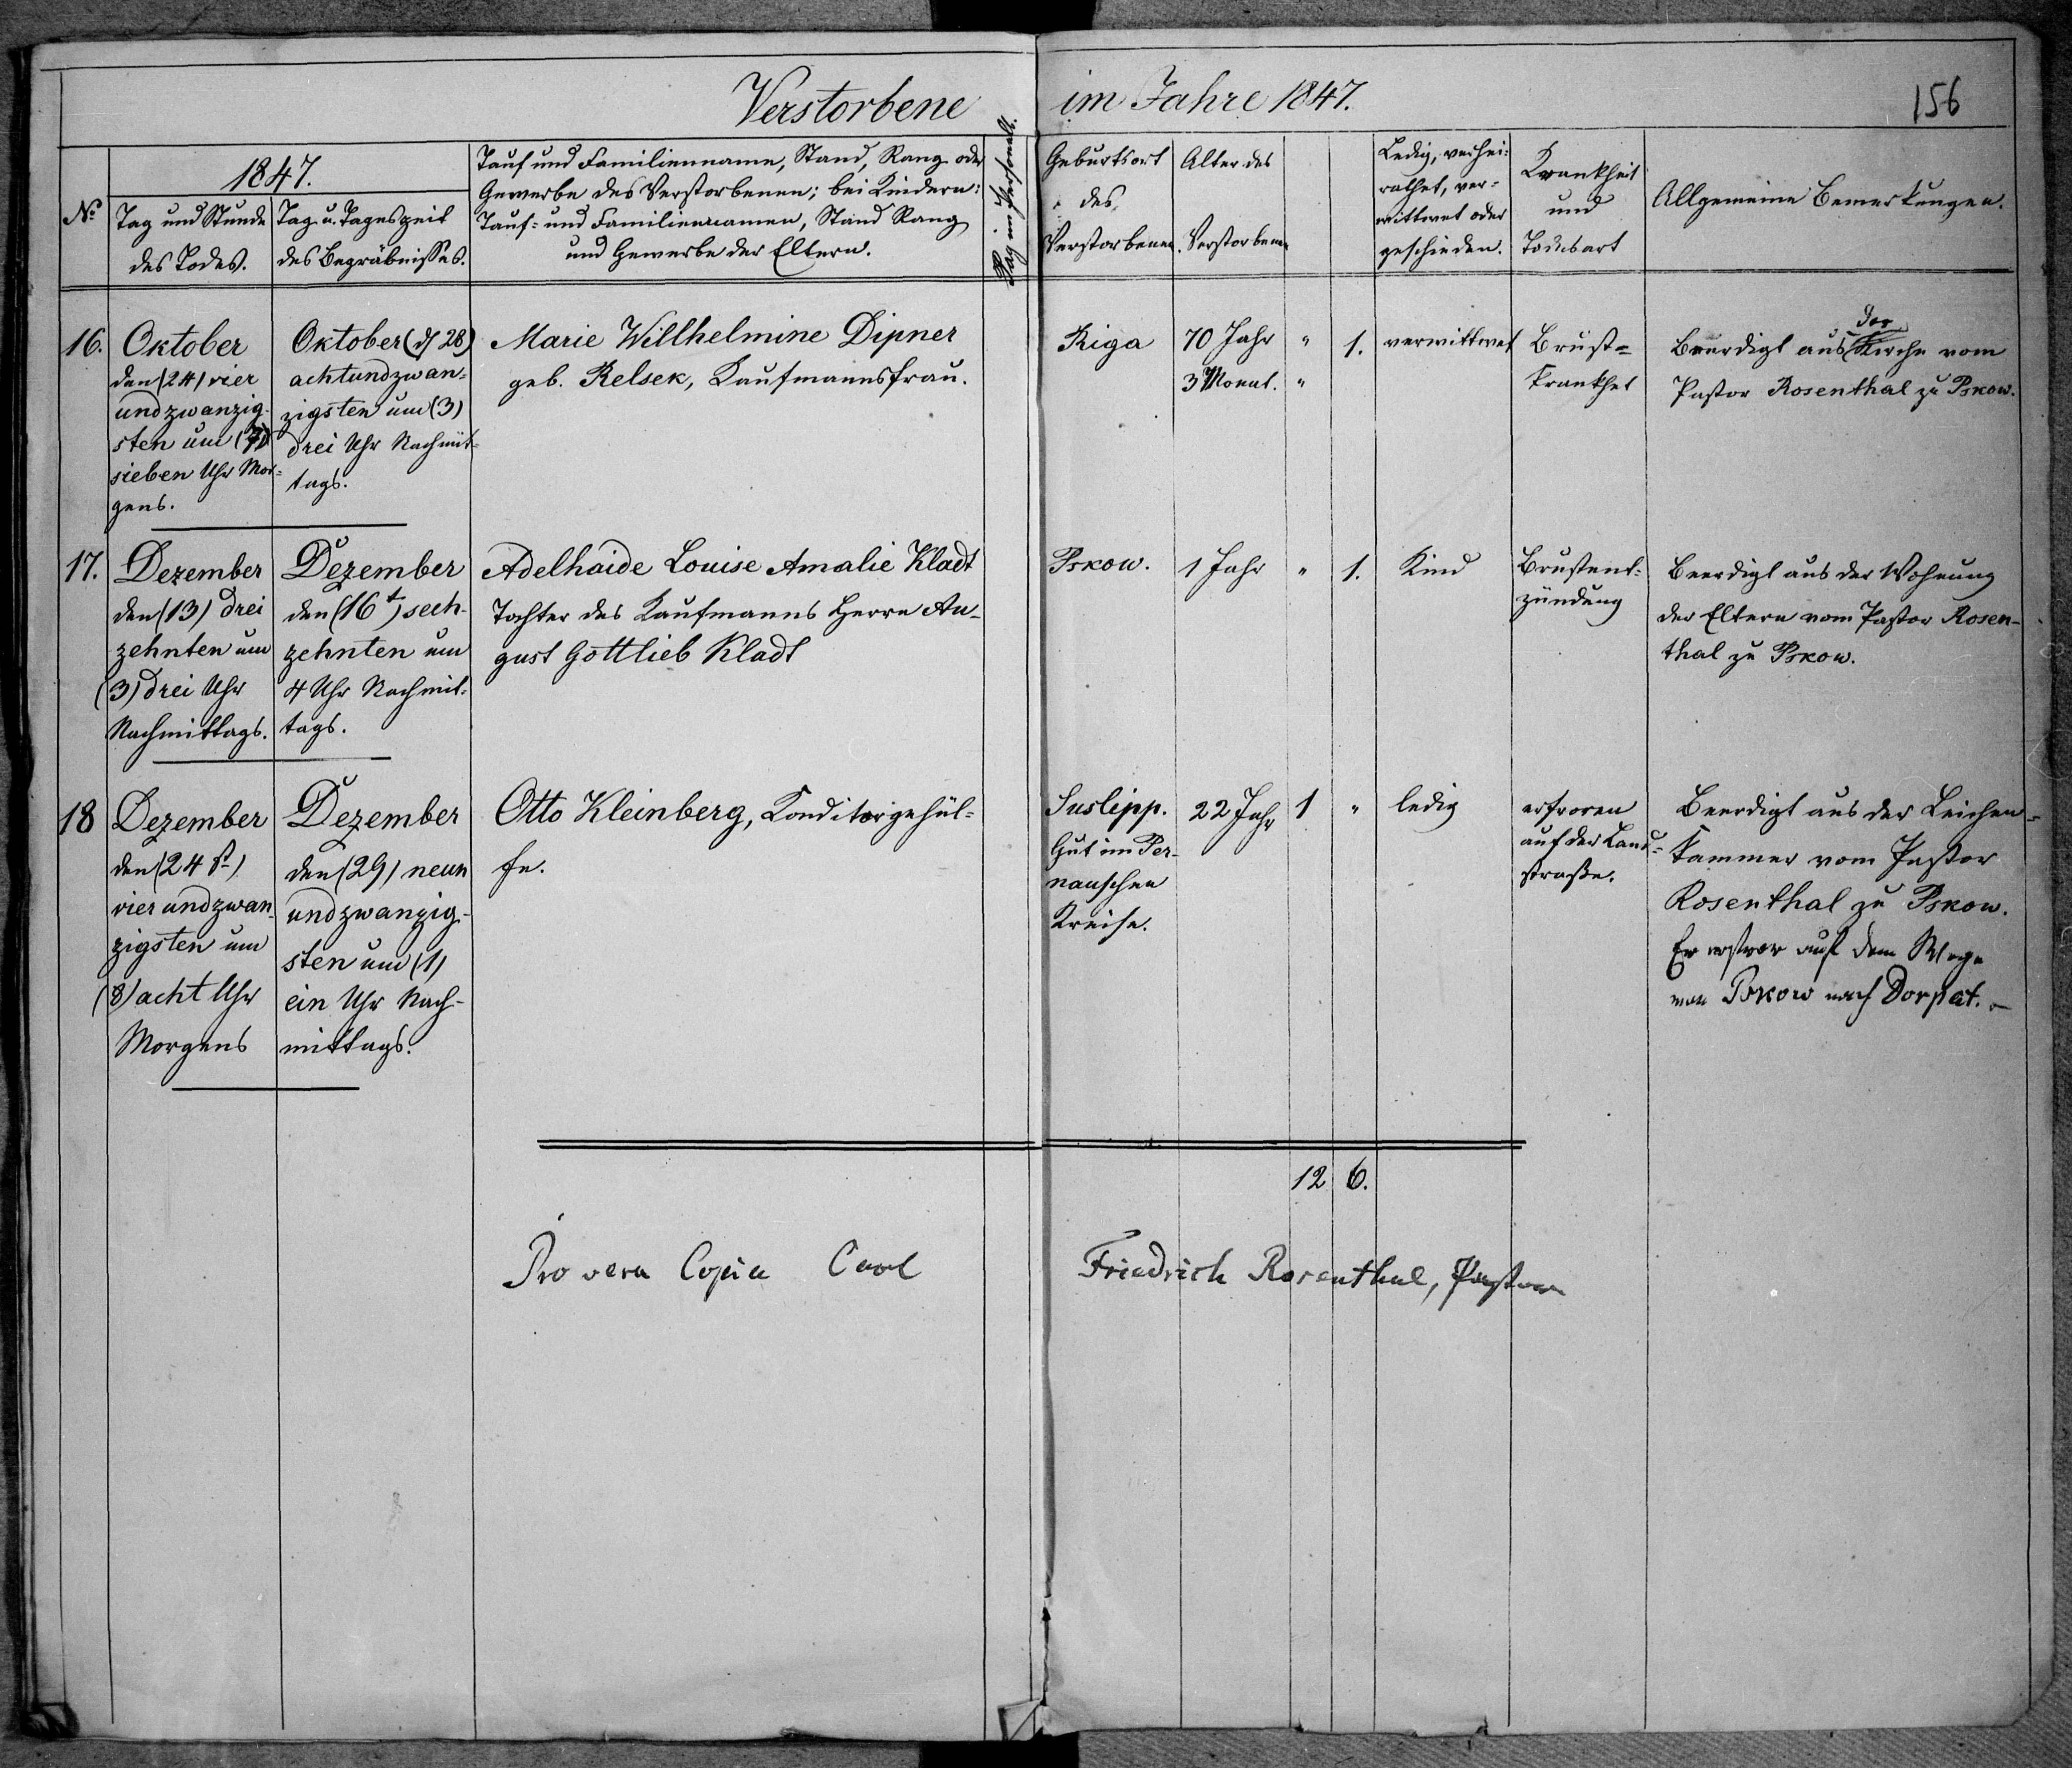 Verstorbene im Jahre 1847.
156
No
1847.
Tag und Stunde
des Todes.
Tag u. Tageszeit
des Begräbnißes.
Tauf und Familienname, Stand, Rang oder
Gewerbe des Verstorbenen; bei Kindern:
Tauf- und Familiennamen, Stand Rang
und Gewerbe der Eltern.
Geburtsort
des
Verstorbenen.
Alter des
Verstorbenen
Ledig, verhei-
rathet, ver-
wittwet oder
geschieden.
Krankheit
und
Todesart
Allgemeine Bemerkungen.
16.
Oktober
den (24) vier
undzwanzig-
sten um (7)
sieben Uhr Mor-
gens.
Oktober (d 28)
achtundzwan-
zigsten um (3)
drei Uhr Nachmit-
tags.
Marie Willhelmine Dipner
geb. Relsek, Kaufmannsfrau.
Riga
70 Jahr
3 Monat.
"
"
1.
verwittwet
Brust-
krankhet
der
Beerdigt aus Kirche vom
Pastor Rosenthal zu Pskow.
17.
Dezember
den (13) drei
zehnten um
(3) drei Uhr
Nachmittags.
Dezember
den (16t) sech-
zehnten um
4 Uhr Nachmit-
tags.
Adelhaide Louise Amalie Kladt
Tochter des Kaufmanns Herrn Au-
gust Gottlieb Kladt
Pskow.
1 Jahr
"
1.
Kind
Brustent-
zündung
Beerdigt aus der Wohnung
der Eltern vom Pastor Rosen-
thal zu Pskow.
18
Dezember
den (24st)
vier undzwan-
zigsten um
(8) acht Uhr
Morgens
Dezember
den (29) neun
undzwanzig-
sten um (1)
ein Uhr Nach-
mittags.
Otto Kleinberg, Konditorgehül-
fe.
Suslepp.
Gut im Per-
nauschen
Kreise.
22 Jahr
1
"
ledig
erfroren
auf der Land-
straße.
Beerdigt aus der Leichen-
kammer vom Pastor
Rosenthal zu Pskow.
Er erfror auf dem Wege
von Pskow nach Dorpat. –
12 6.
Pro vera Copia Carl Friedrich Rosenthal, Pastor